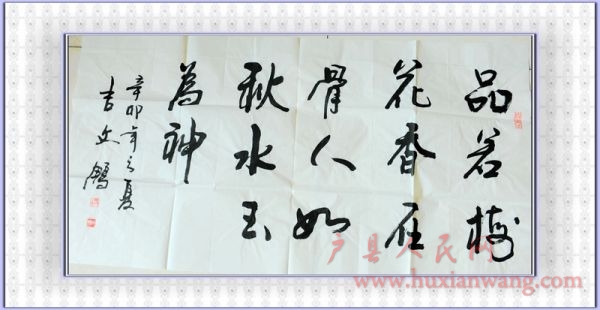 品若梅
花香在
骨人如
秋水玉
为神
辛卯年之夏
吉文鸿
户县人民网
www.huxianwang.com